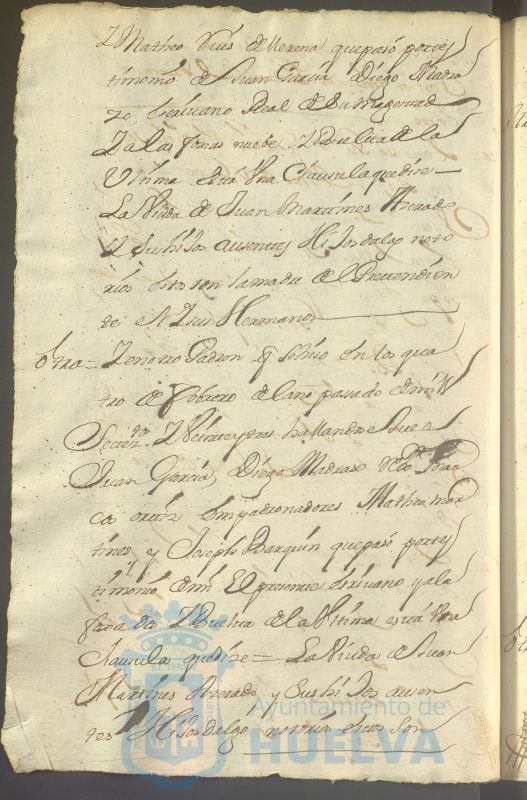 Y Matheo Ruis de Llerena que pasó por tes
timonio de Juan Garcia Diego Madra
zo Escrivano Real de Su Magestad
Y a las foxas nuebe Y Buelta de la
Ultima esta Una Clausula que dize =
La Viuda de Juan Martines
Y sus hi Jos ausentes Hi Josdalgo noto
rios esto son la madre de el Pretendien
te el Y sus Hermanos
Otra = Y en otro Padron q se hiso en los qua
tro de febrero de el año pasado de mil
Setezos Y Veinte y tres hallandose Juez
Juan Garcia, Diego Madraso
cos ortiz Empadronadores Matheo mar
tines, y Joseph Barquin que pasó por tes
timonio de mi El presente escrivano y a la
foxa dos Y Buelta de la Ultima está Una
Clausula que dize = La Viuda de Juan
Martines y sus hi Jos ausen
tes Hi Josdalgo notorios estos son
Ayuntamiento de
HUELVA